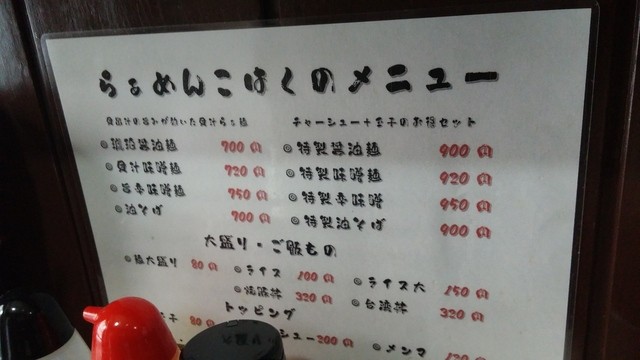 らぁめんこはくのメニュー
貝出汁の旨みが効いた貝汁らぁ麺 チャーシュー+玉子のお得セット
◎琥珀醤油麺 700円 ◎特製醤油麺 900円
◎貝汁味噌麺 720円 ◎特製味噌麺 920円
◎旨辛味噌麺 750円 ◎特製辛味噌 950円
◎油そば 700円 ◎特製油そば 900円
大盛り・ご飯もの
◎麺大盛り 80円 ◎ライス 100円 ◎ライス大 150円
320円 ◎台湾丼 320円
トッピング
子 80円 シュー200円 ◎メンマ